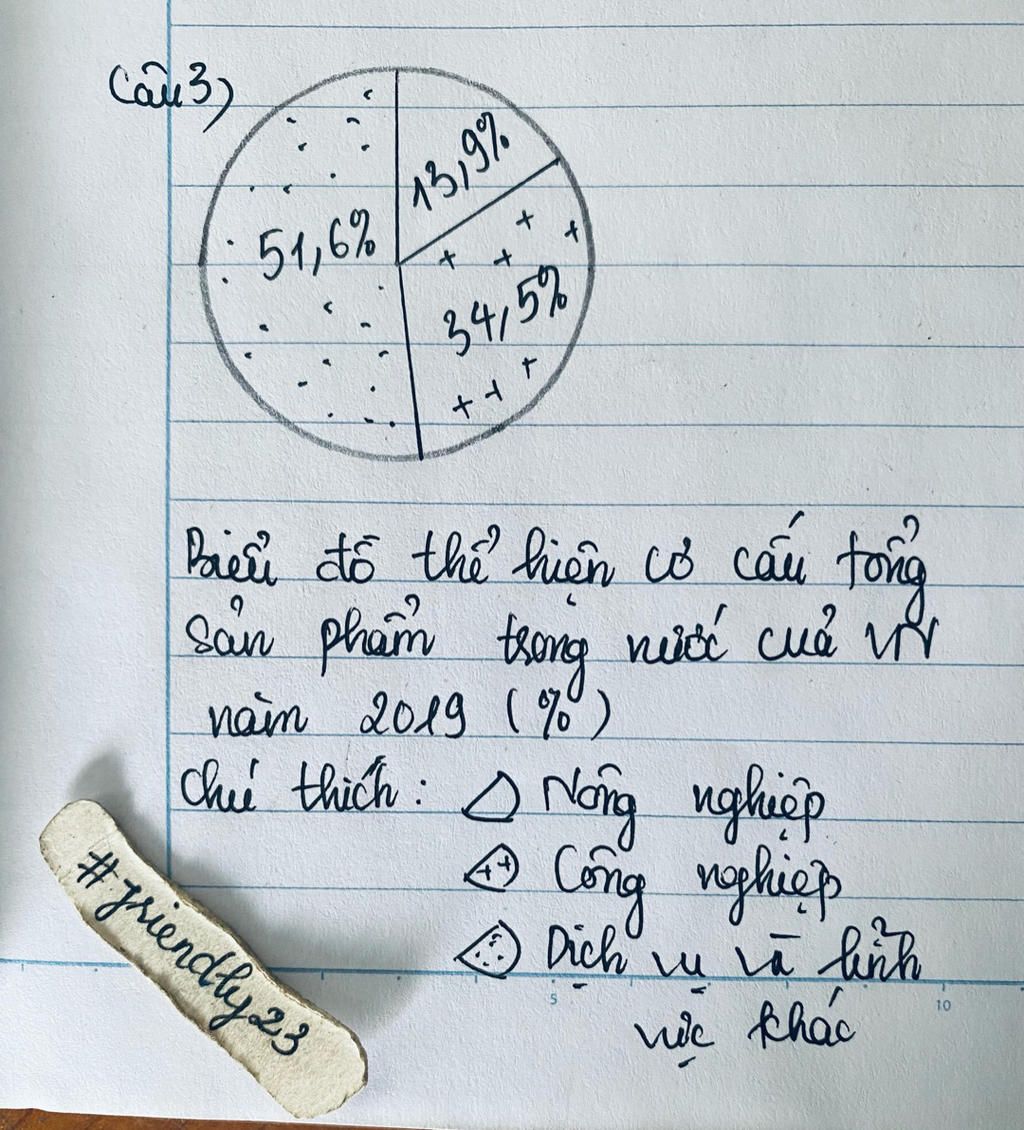 Câu 3)
13,9%
51,6%
34,5%
Biểu đồ thể hiện cơ cấu tổng
sản phẩm trong nước của VN
năm 2019 (%)
Chú thích: Nông nghiệp
++ Công nghiệp
Dịch vụ và lĩnh
vực khác
#friendly23
5
10